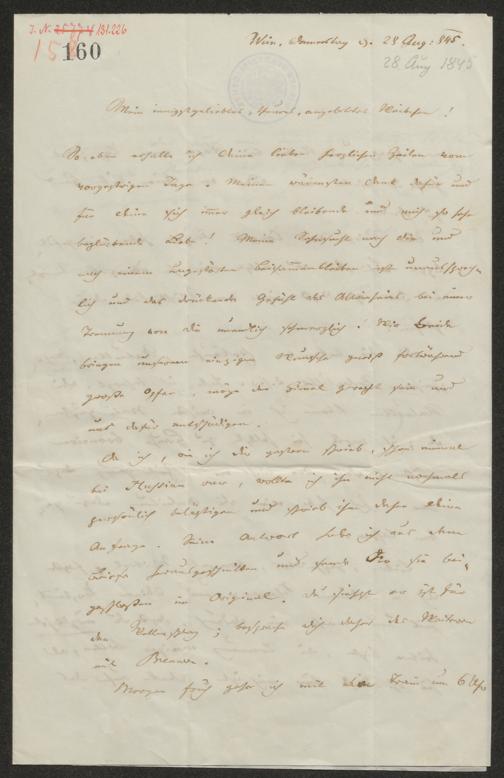 J. N. 25774 131.226
158
160
Wien, Donnerstag d. 28 Aug: 845.
28 Aug 1845
Mein innigstgeliebtes, theures, angebetetes Mädchen!
So eben erhalte ich deine lieben herzlichen Zeilen vom
vorgestrigen Tage. Meinen wärmsten Dank dafür und
für deine sich immer gleich bleibende und mich so sehr
beglückende Liebe! Meine Sehnsucht nach dir und
nach einem ungestörten Beisammenbleiben ist unaussprech-
lich und das drückende Gefühl des Alleinseins bei einer
Trennung von dir unendlich schmerzlich! Wir Beide
bringen unserem einzigen Wunsche gewiß fortwährend
große Opfer, möge der Himmel gerecht sein und
uns dafür entschädigen.
Da ich, wie ich dir gestern schrieb, schon einmal
bei Hussian war, wollte ich ihn nicht nochmals
persönlich belästigen und schrieb ihm daher deine
Anfrage. Seine Antwort habe ich aus dem
Briefe herausgeschnitten und sende dir sie bei-
geschlossen im Original. Du siehst er ist für
den ; besprich dich daher des Weiteren
mit Brenner.
Morgen früh gehe ich mit dem Train um 6 Uhr